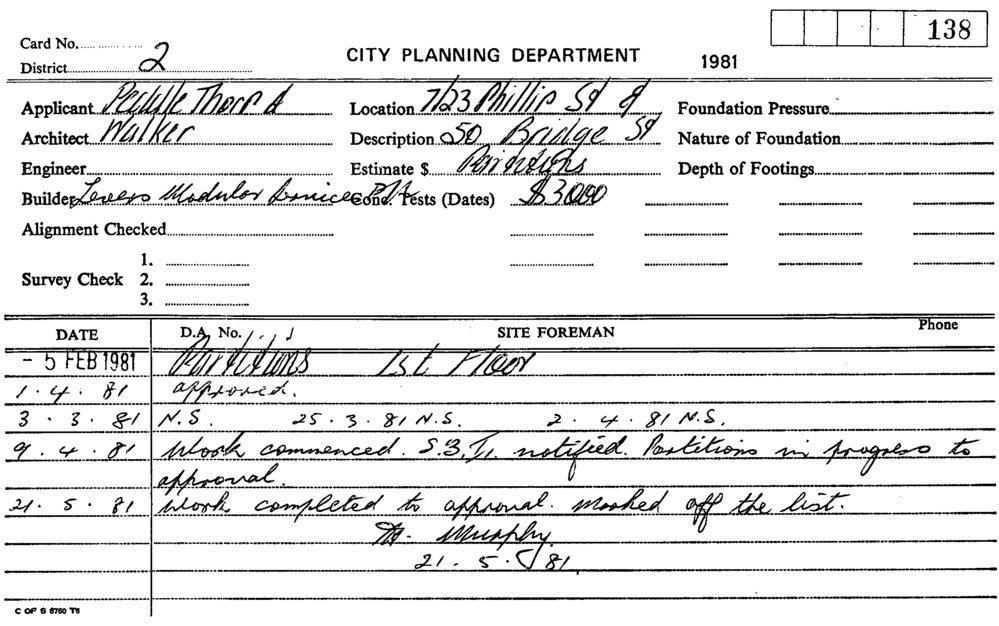 138
Card No.
CITY PLANNING DEPARTMENT 1981
District 2
Applicant Peddle Thorp & Location 7/23 Phillip St & Foundation Pressure
Architect Walker Description 50 Bridge St Nature of Foundation
Engineer Estimate $ Partitions Depth of Footings
Builder Levers Modular Services P/L Cond. Tests (Dates) $3000
Alignment Checked
1.
Survey Check 2.
3.
DATE D.A. No. SITE FOREMAN Phone
- 5 FEB 1981 Partitions 1st Floor
1 . 4 . 81 approved.
3 . 3 . 81 N.S. 25 . 3 . 81 N.S. 2 . 4 . 81 N.S.
9 . 4 . 81 Work commenced. S.B.I. notified. Partitions in progress to
approval.
21 . 5 . 81 Work completed to approval. Marked off the list.
Murphy
21 . 5 . 81
C OF S 6760 T6